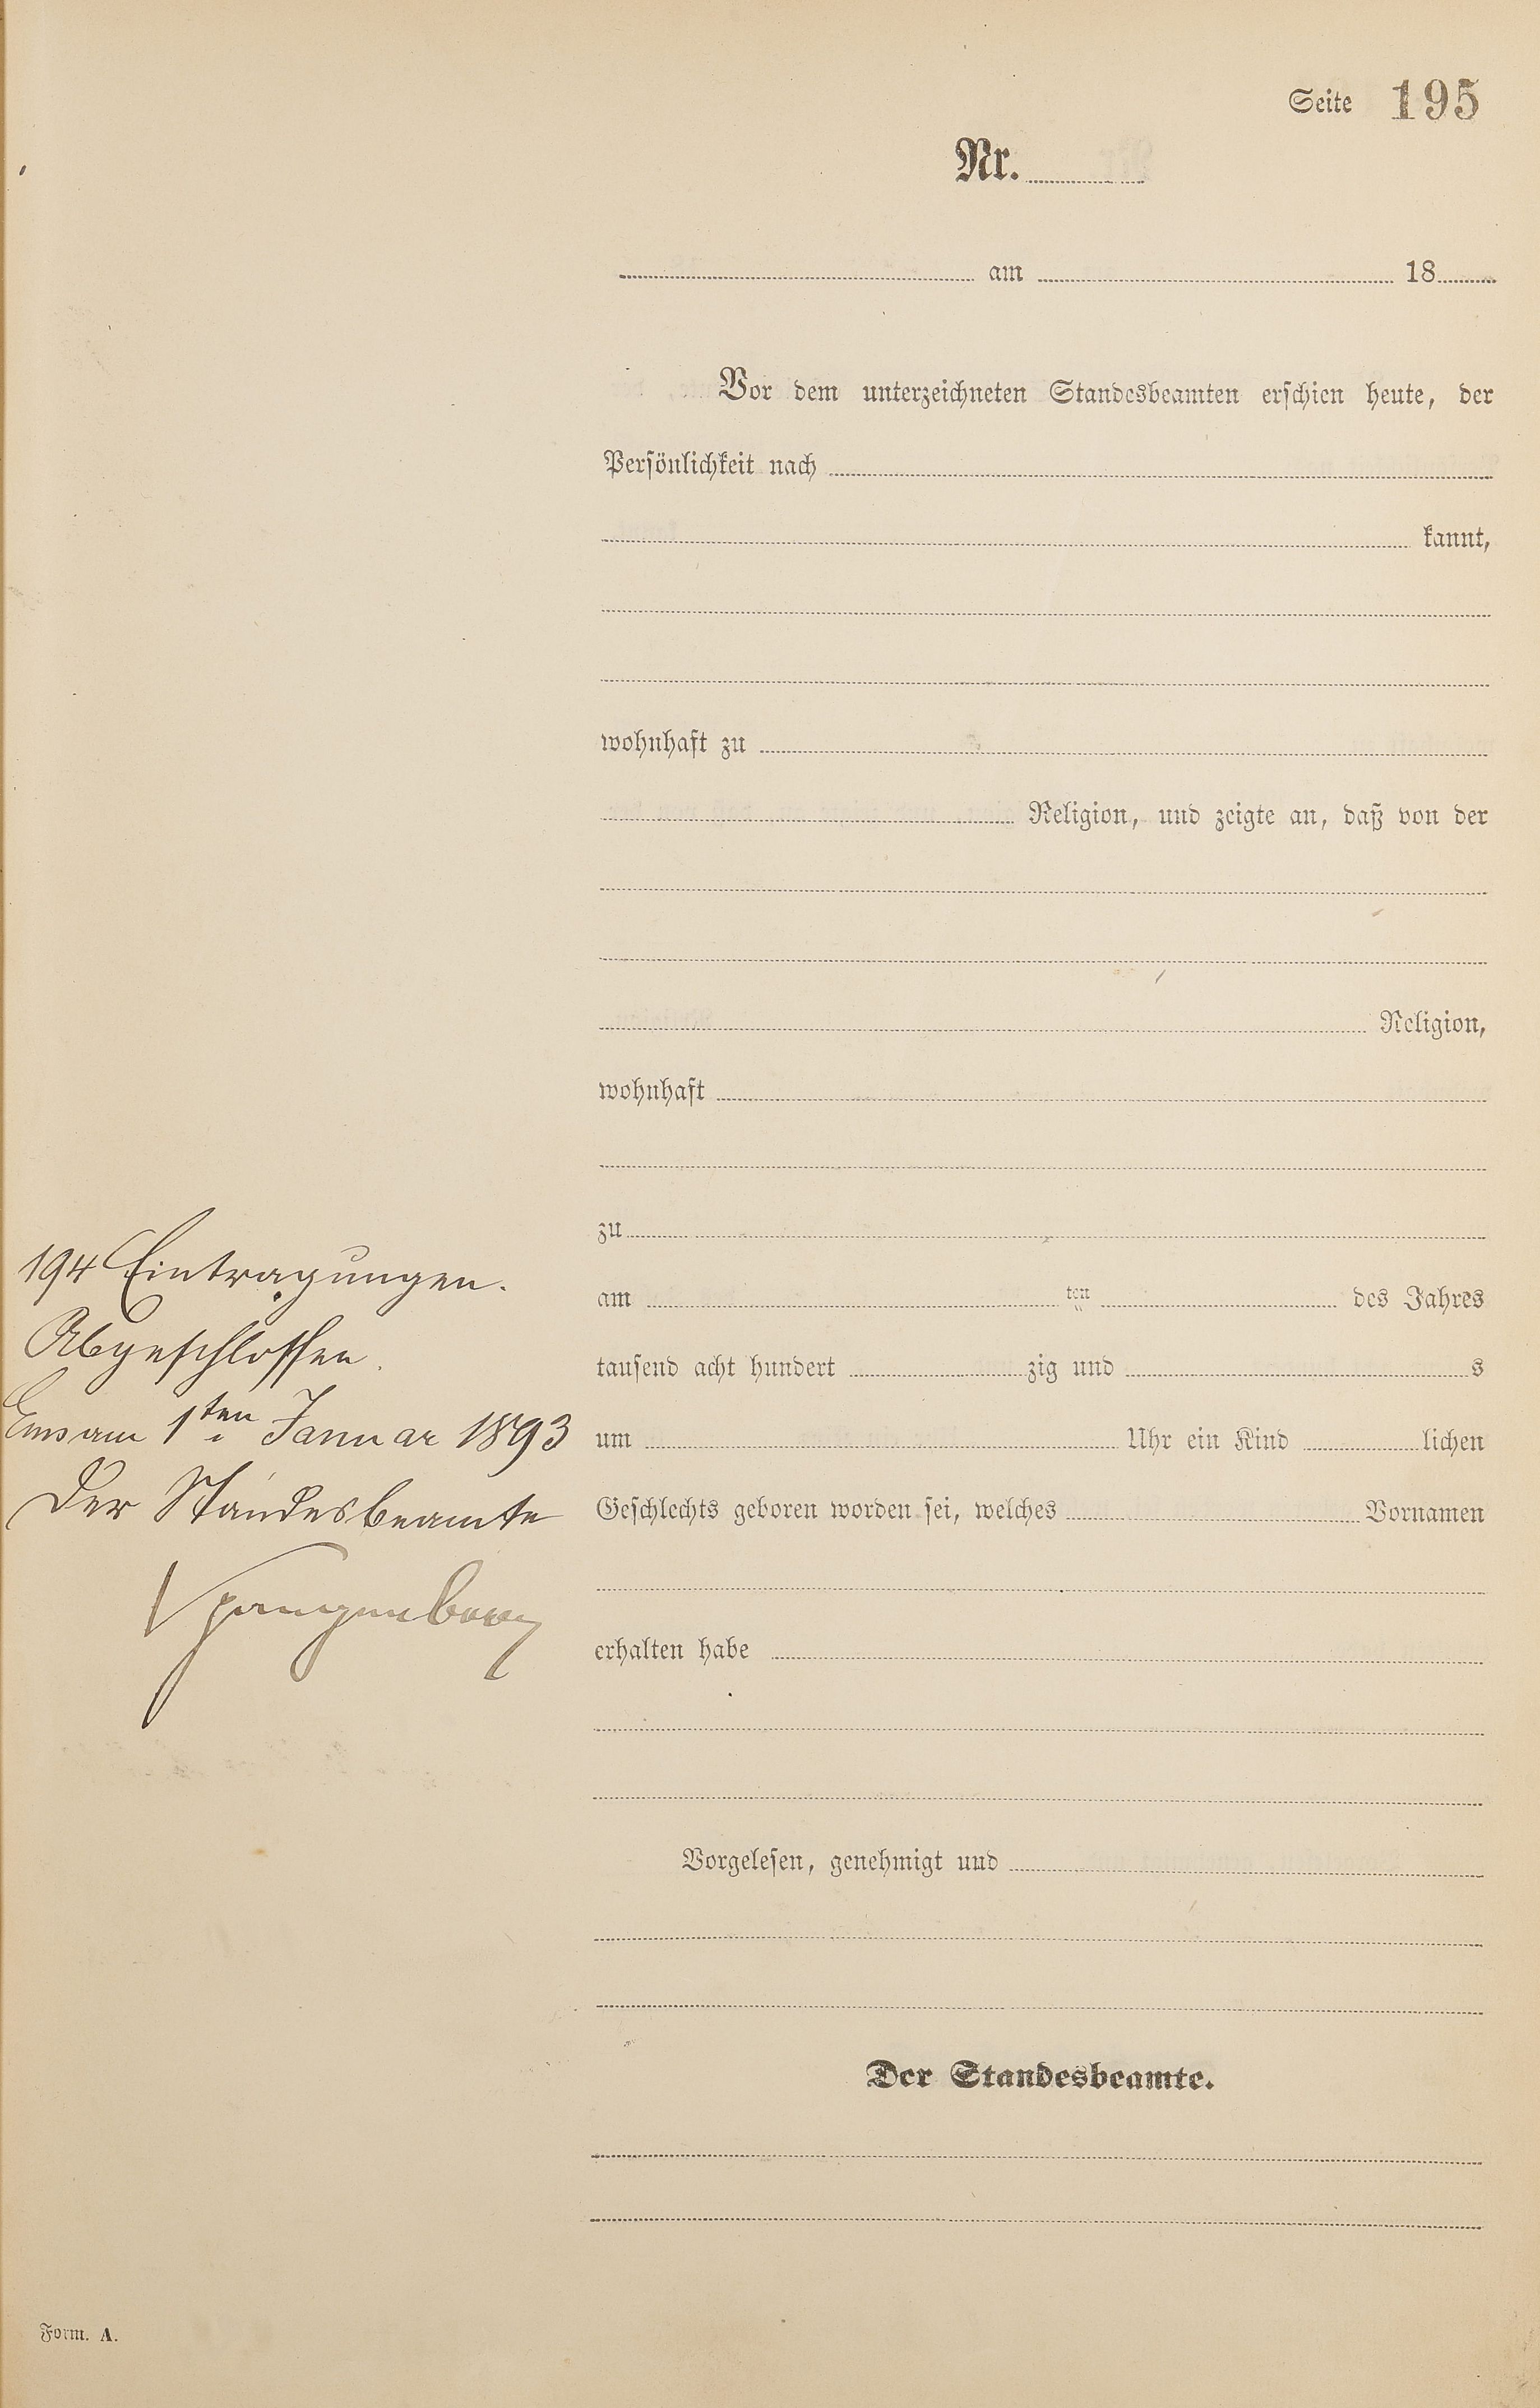 Seite 195
Nr.
am 18
Vor dem unterzeichneten Standesbeamten erschien heute, der
Persönlichkeit nach
kannt,
wohnhaft zu
Religion, und zeigte an, daß von der
Religion,
wohnhaft
zu
am ten des Jahres
tausend acht hundert zig und s
um Uhr ein Kind lichen
Geschlechts geboren worden sei, welches Vornamen
erhalten habe
Vorgelesen, genehmigt und
Der Standesbeamte.
194 Eintragungen.
Abgeschlossen.
Ems am 1ten Januar 1893
Der Standesbeamte
Spangenberg
Form. A.